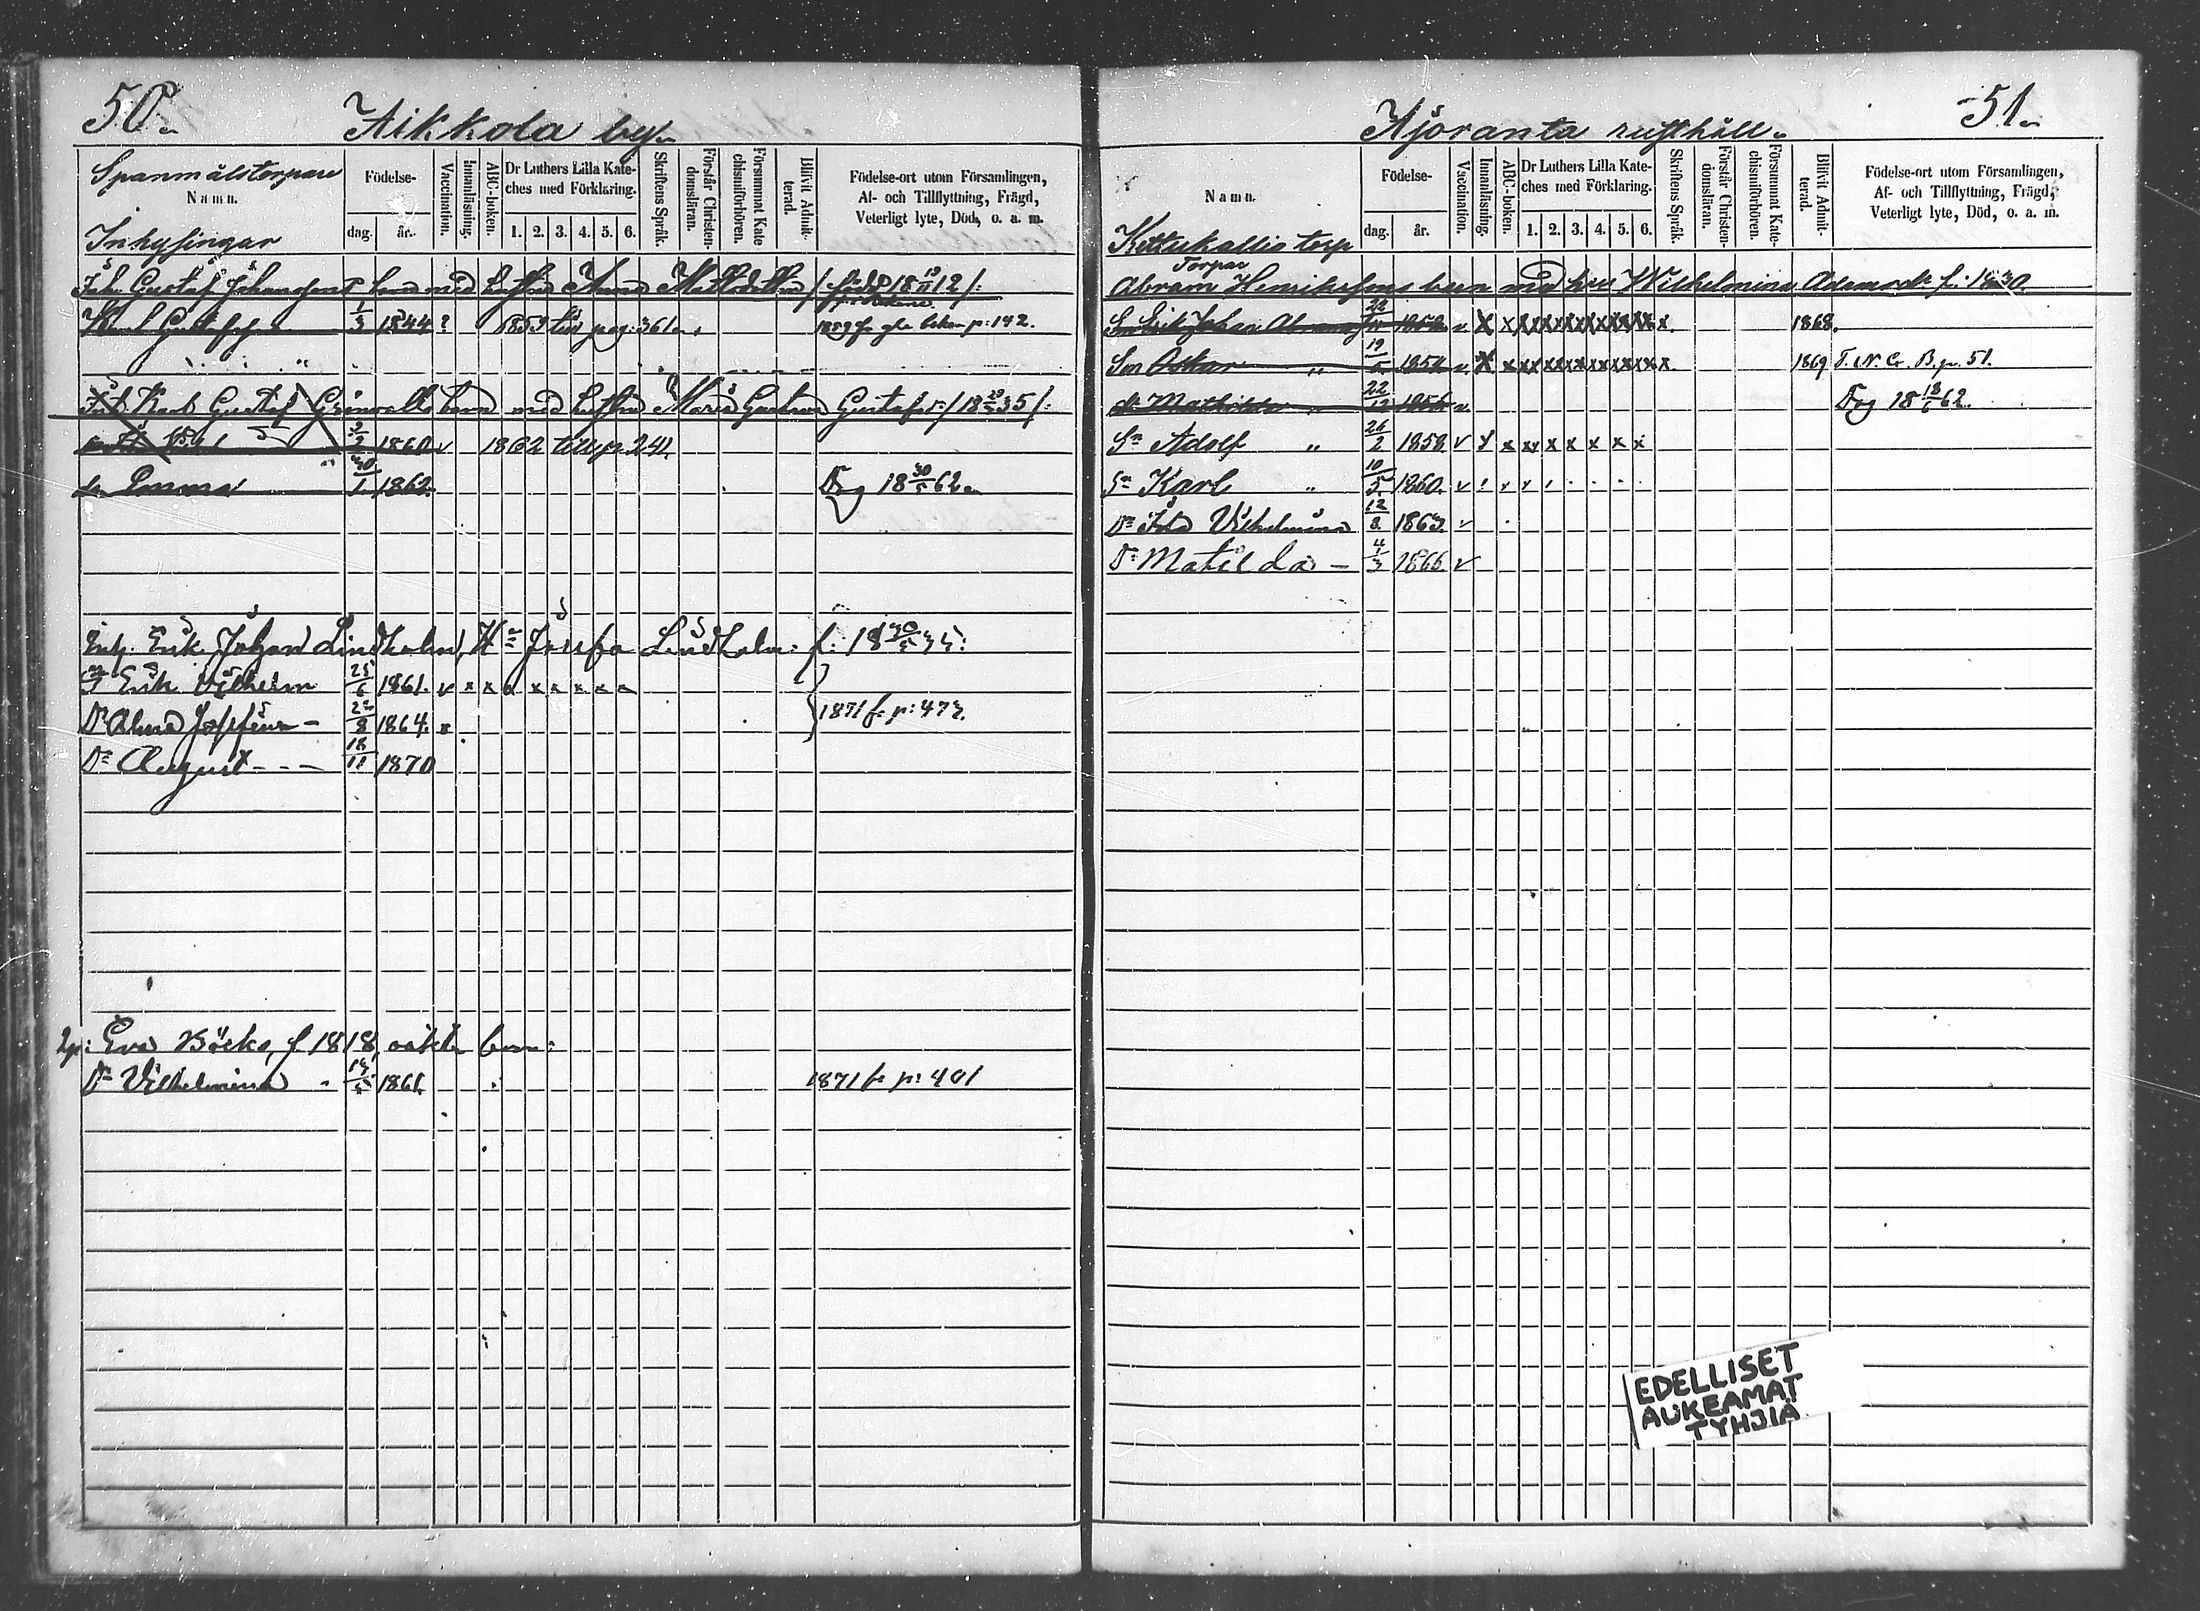 50.
Aikkola by.
Spanmålstorpare
Namn.
Inhysingar
Födelse-
dag. år.
Vaccination.
Innanläsning.
ABC-boken.
Dr Luthers Lilla Kate-
ches med Förklaring.
1. 2. 3. 4. 5. 6.
Skriftens Språk.
Förstår Christen-
domsläran.
Försummat Kate
chismiförhören.
Blifvit Admit-
terad.
Födelse-ort utom Församlingen,
Af- och Tillflyttning, Frägd,
Veterligt lyte, Död, o. a. m.
Inh. Gustaf Johanssons barn med hustru Anna
Karl Gustafss 1/3 1844 ? 1859 pag. 361 1859 fr gla boken p: 142.
Inh. Karl Gustaf Grönvalls barn med hustru Maria Gustava Gustafsdr
1860 v 1862 till p. 241.
dr Emma 30/1 1862. Dog 18 30/5 62
Inh. Erik Johan Lindholm, H:n Josefa Lindholm f: 18 30/5
S:n Erik Vilhelm 25/6 1861. v x x x x x x x
D:r Alma Josefina 1864. x 1871 fr p: 473.
August 18/11 1870
Eva Böcks, f. 1818, oäkta barn:
D:r Vilhelmina 1861. 1871 fr p: 401
51.
Ajoranta rusthåll.
Namn.
Kittukallio torp
Födelse-
dag. år.
Vaccination.
Innanläsning.
ABC-boken.
Dr Luthers Lilla Kate-
ches med Förklaring.
1. 2. 3. 4. 5. 6.
Skriftens Språk.
Förstår Christen-
domsläran.
Försummat Kate-
chismiförhören.
Blifvit Admit-
terad.
Födelse-ort utom Församlingen,
Af- och Tillflyttning, Frägd,
Veterligt lyte, Död, o. a. m.
Torpar
Abram Henrikssons barn med hru Wilhelmina Adamsdr f. 1830.
Son Erik Johan Abramss 1852 v. x x x x x x x x x x. 1868.
Son Oskar " 19/5 1854 v. x x x x x x x x x 1869 T. N. C. B. p. 51.
dr Mathilda " 22/12 1856 v. Dog 18 13/6 62.
Sn Adolf " 26/2 1858. v x x x x x x x
Sn Karl " 10/5 1860. v
Dr Ida Vilhelmina 12/8 1863. v
Dr Matilda - 4/3 1866. v
EDELLISET
AUKEAMAT
TYHJIÄ